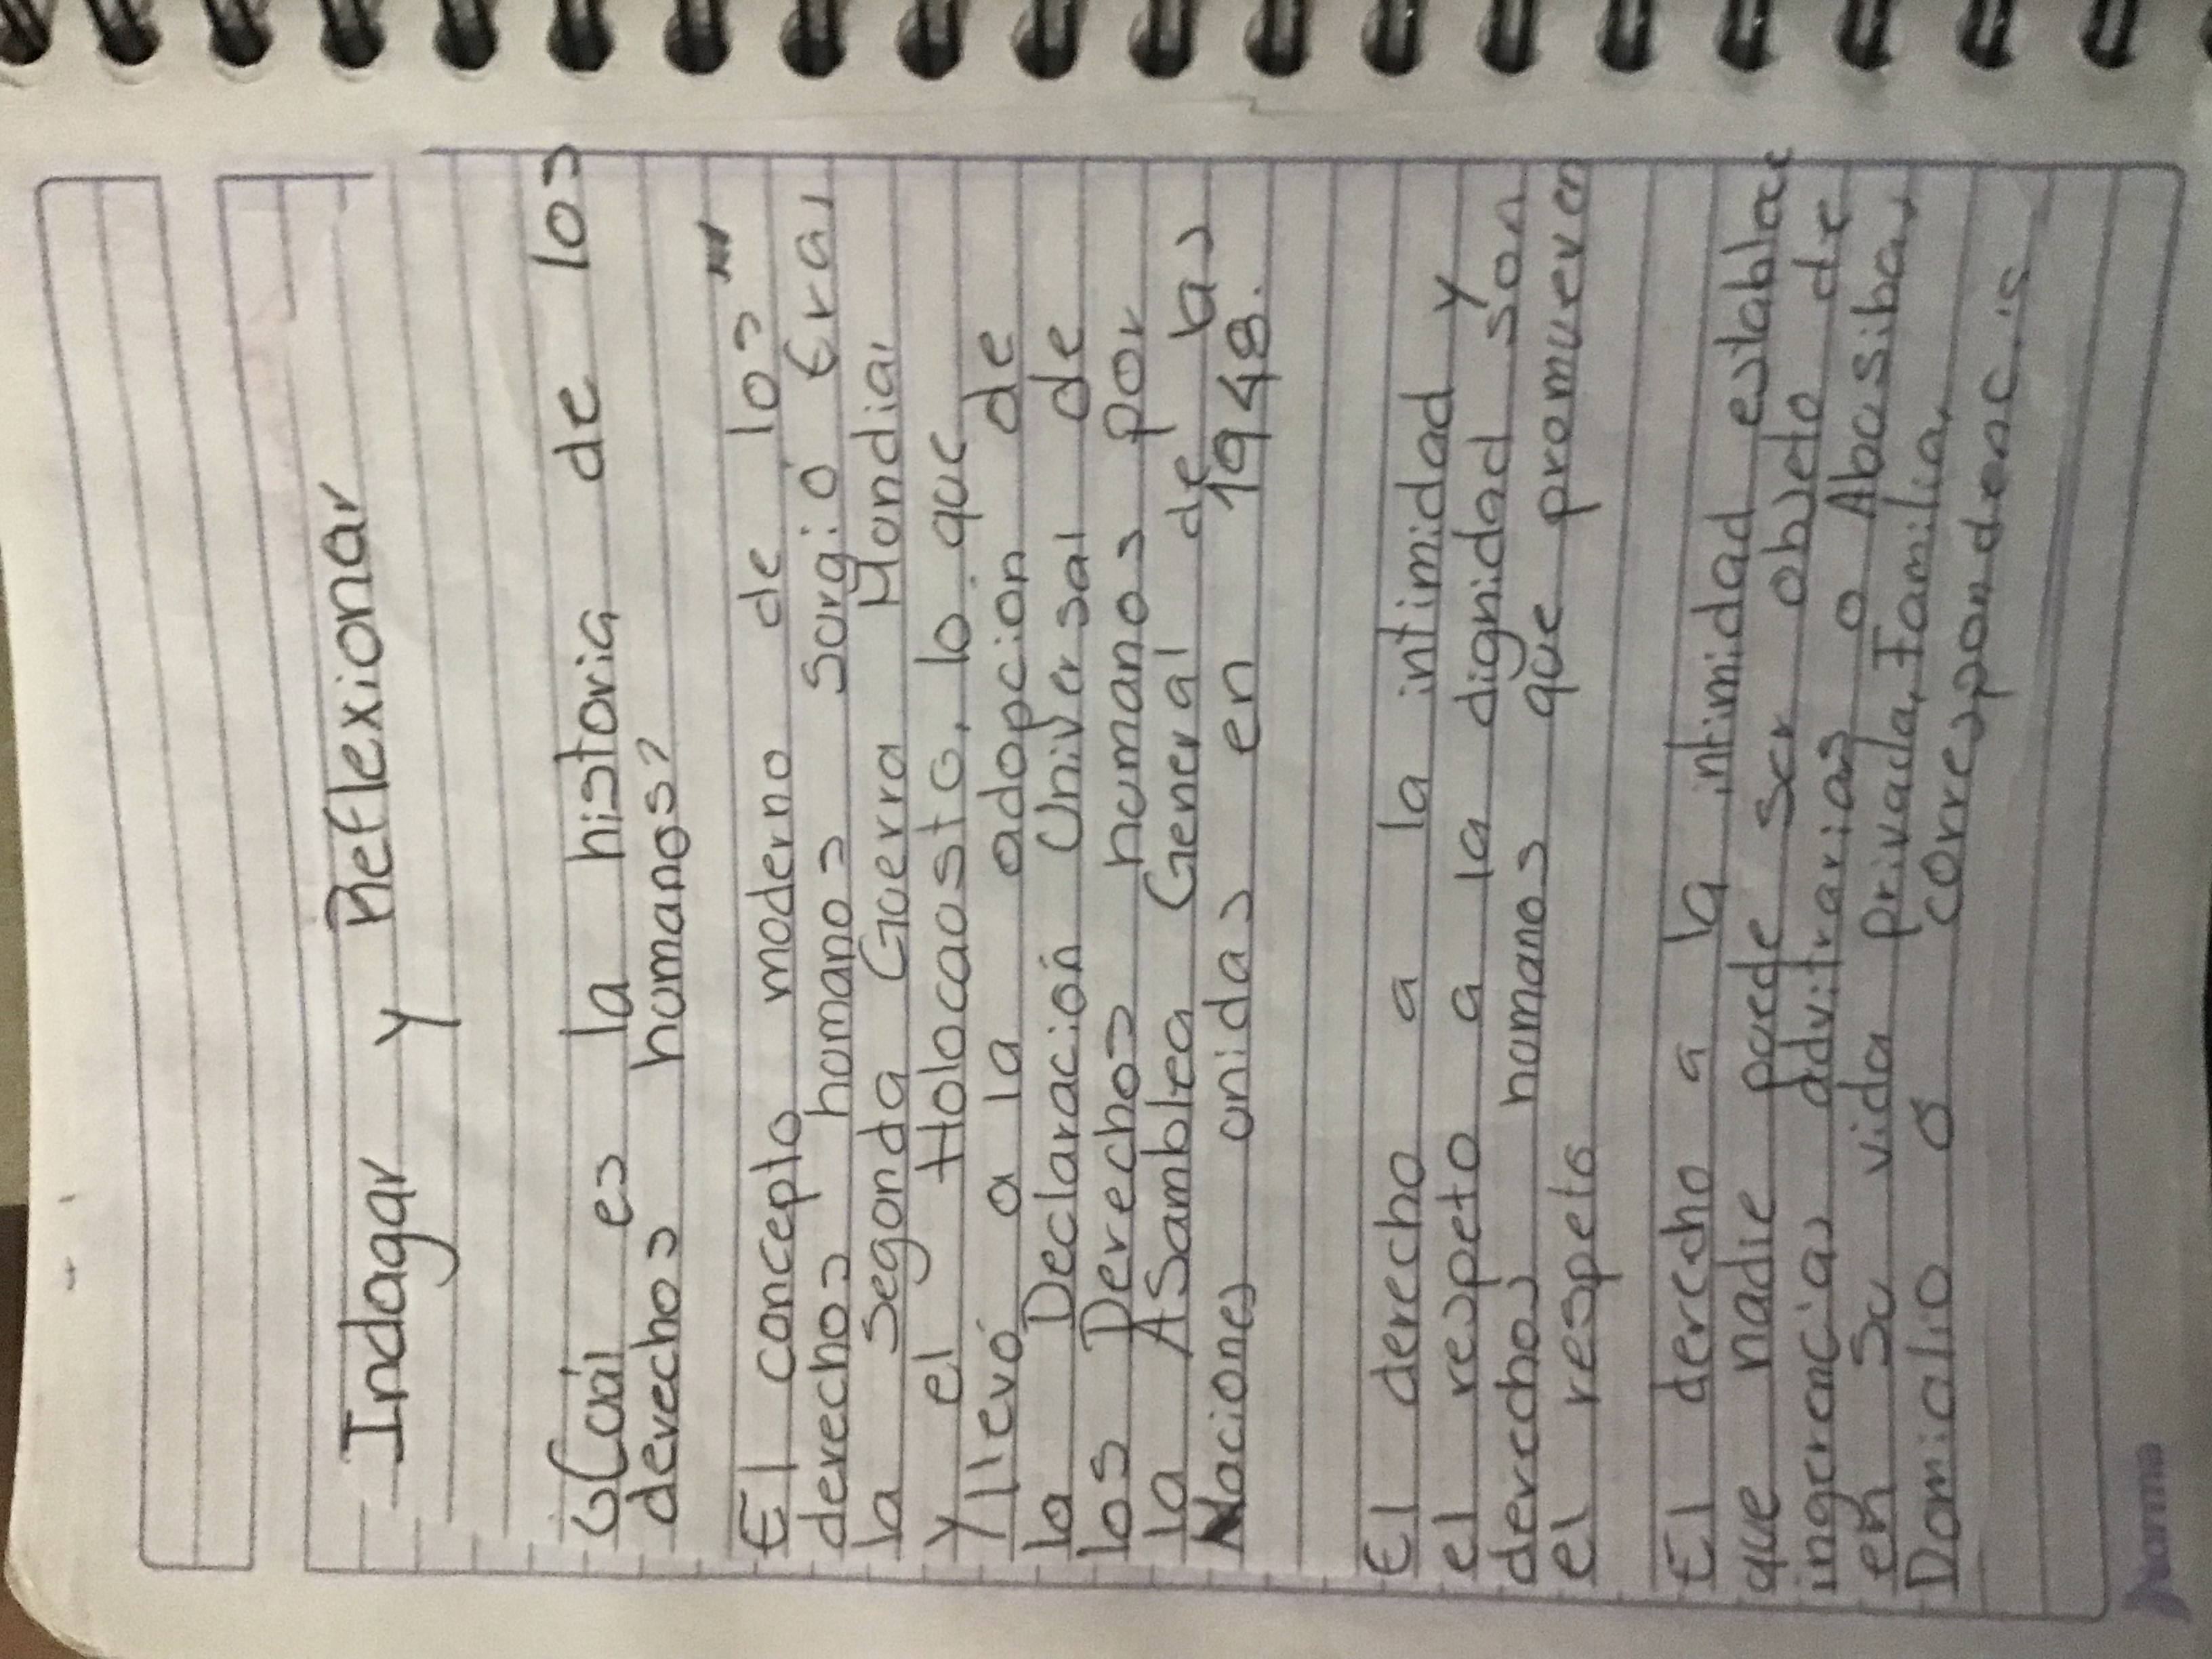 Indagar y Reflexionar
¿Cuál es la historia de los
derechos humanos?
El concepto moderno de los
derechos humanos surgió tras
la segonda Guerra Mondial
y el Holocausto, lo que
llevó a la adopción de
la Declaración Universal de
los Derechos humanos por
la Asamblea General de las
Naciones unidas en 1948.
El derecho a la intimidad y
el respeto a la dignidad son
derechos humanos que promueven
el respeto
El derecho a la intimidad establace
que nadie puede ser objeto de
ingerencias advitrarias o Abusibas
en su vida privada, Familia,
Domialio o correspondencia
Norma